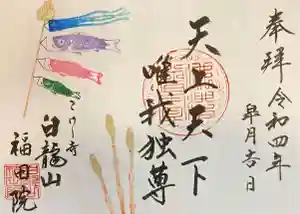 奉拝
令和四年
皐月吉日
天上天下
唯我独尊
つくし寺
白龍山
福田院